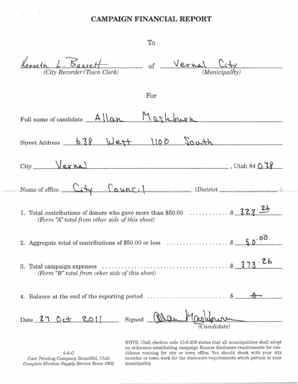 CAMPAIGN FINANCIAL REPORT
To
Kenneth L. Bassett of Vernal City
(City Recorder/Town Clerk) (Municipality)
For
Full name of candidate Allan Mashburn
Street Address 638 West 1100 South
City Vernal , Utah 84078
Name of office City Council (District )
1. Total contributions of donors who gave more than $50.00 $ 323.26
(Form "A" total from other side of this sheet)
2. Aggregate total of contributions of $50.00 or less $ 50.00
3. Total campaign expenses $ 373.26
(Form "B" total from other side of this sheet)
4. Balance at the end of the reporting period $ 0
Date 27 Oct 2011 Signed Allan Mashburn
(Candidate)
Carr Printing Company, Bountiful, Utah
Complete Election Supply Service Since 1902
NOTE: Utah election code 10-3-208 states that all municipalities shall adopt
an ordinance establishing campaign finance disclosure requirements for can-
didates running for city or town office. You should check with your city
recorder or town clerk for the disclosure requirements which pertain to your
municipality.